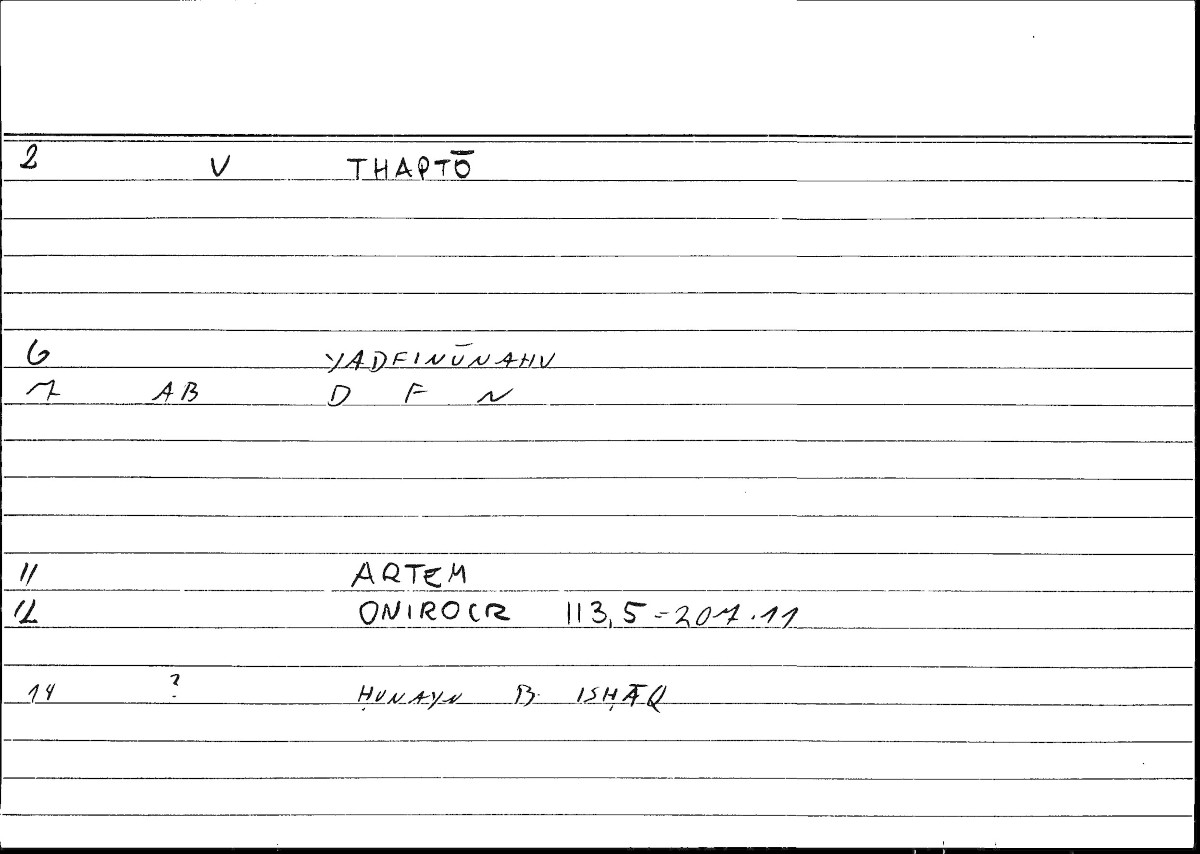 2 V THAPTŌ
6 YADFINŪNAHU
7 AB D F N
11 ARTEM
12 ONIROCR 113,5 = 207.11
14 ? ḤUNAYN B. ISḤĀQ